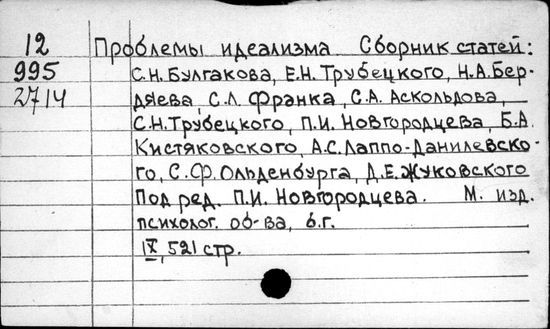 12 Проблемы идеализма Сборник статей:
995 С.Н. Булгакова, Е.Н. Трубецкого, Н.А. Бер-
2714 дяева, С.Л. Франка, С.А. Аскольдова,
С.Н. Трубецкого, П.И. Новгородцева, Б.А.
Кистяковского, А.С. Лаппо-Данилевско-
го, С.Ф. Ольденбурга, Д.Е. Жуковского
Под ред. П.И. Новгородцева. М. изд.
психолог. об-ва, б.г.
IX, 521 стр.